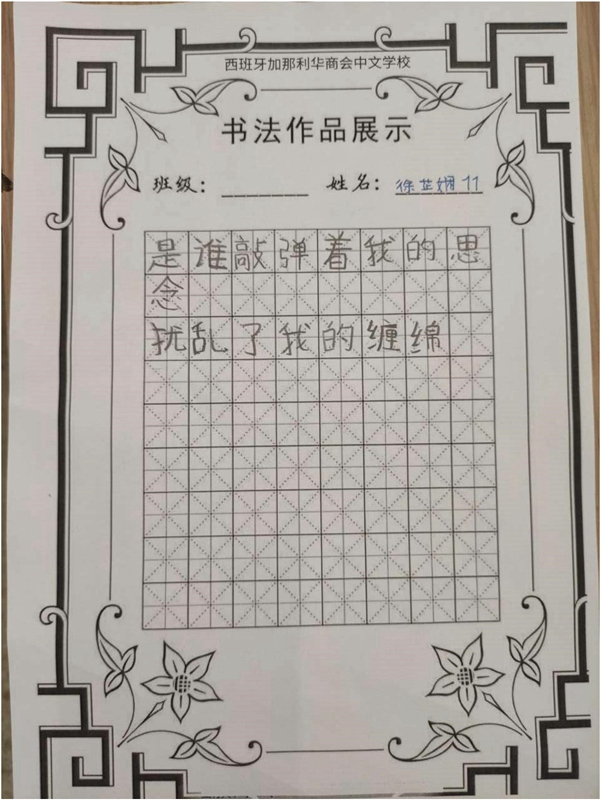 西班牙加那利华商会中文学校
书法作品展示
班级： 姓名：徐芷娴 11
是谁敲弹着我的思
念
扰乱了我的缠绵